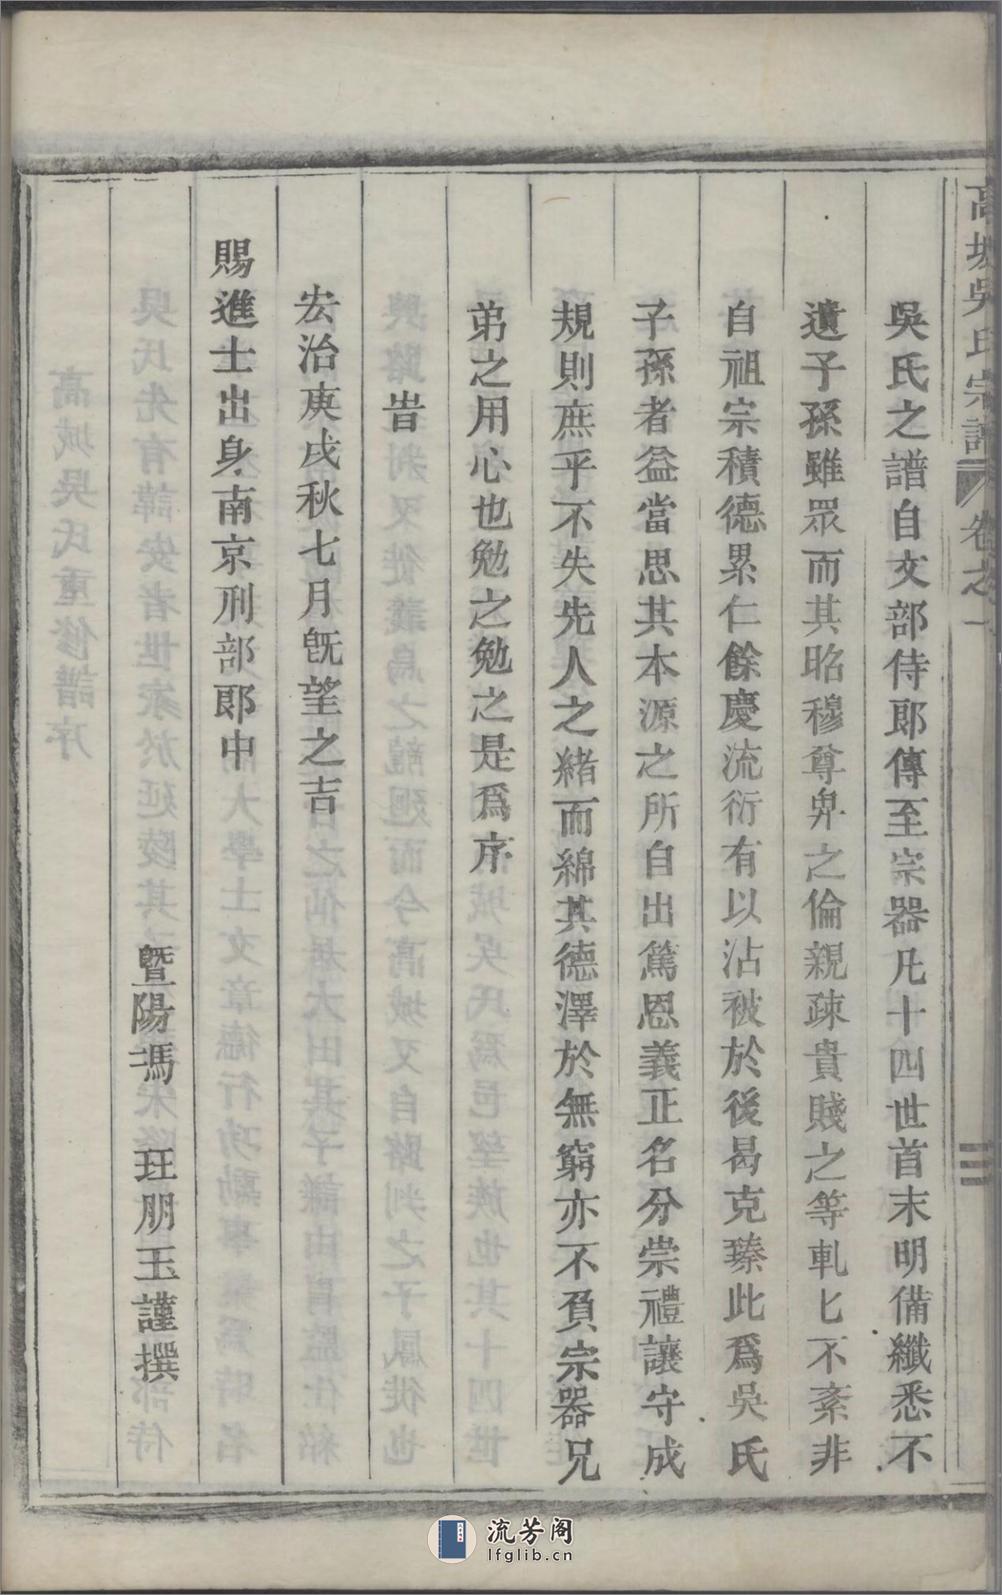 高城吳氏宗譜 卷之一 三
吳氏之譜自文部侍郎傳至宗器凡十四世首末明備纖悉不
遺子孫雖眾而其昭穆尊卑之倫親疎貴賤之等軋匕不紊非
自祖宗積德累仁餘慶流衍有以沾被於後曷克臻此爲吳氏
子孫者益當思其本源之所自出篤恩義正名分崇禮讓守成
規則庶乎不失先人之緒而綿其德澤於無窮亦不負宗器兄
弟之用心也勉之勉之是爲序
旹
宏治庚戌秋七月旣望之吉
賜進士出身南京刑部郎中
暨陽馮珏朋玉謹撰
流芳阁
lfglib.cn